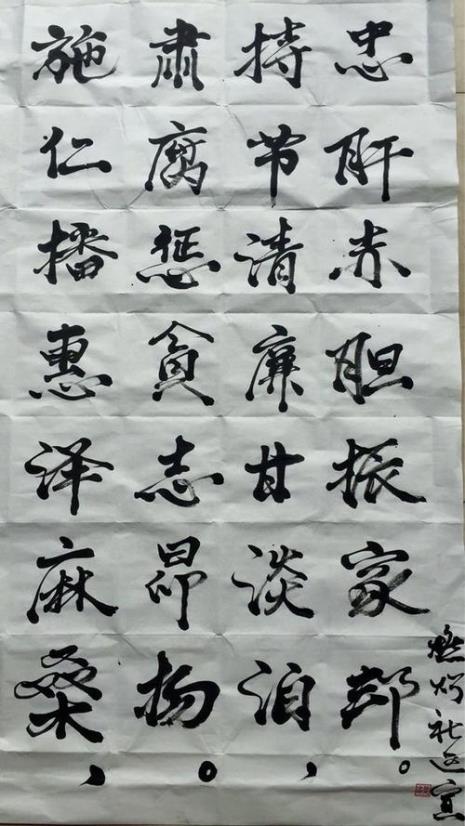 施仁播惠泽麻桑，
肃腐惩贪志昂扬。
持节清廉甘淡泊，
忠肝赤胆振家邦。